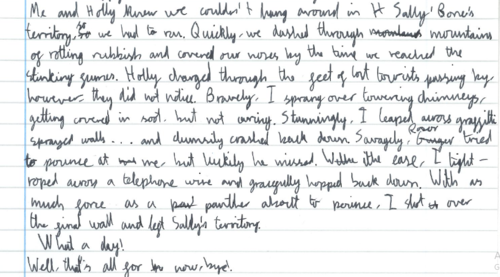 Me and Holly knew we couldn't hang around in H Sally Bone's
territory, so we had to run. Quickly, we dashed through mountains
of rotting rubbish and covered our noses by the time we reached the
stinking sewers. Holly charged through the feet of lost tourists passing by
however they did not notice. Bravely, I sprang over towering chimneys,
getting covered in soot, but not caring. Stunningly, I leaped across graffiti
sprayed walls... and clumsily crashed back down. Savagely, tried
to pounce at me, but luckily he missed. With the ease, I tight-
roped across a telephone wire and gracefully hopped back down. With as
much force as a panther about to pounce, I shot over
the final wall and left Sally's territory.
What a day!
Well, that's all for now, bye!